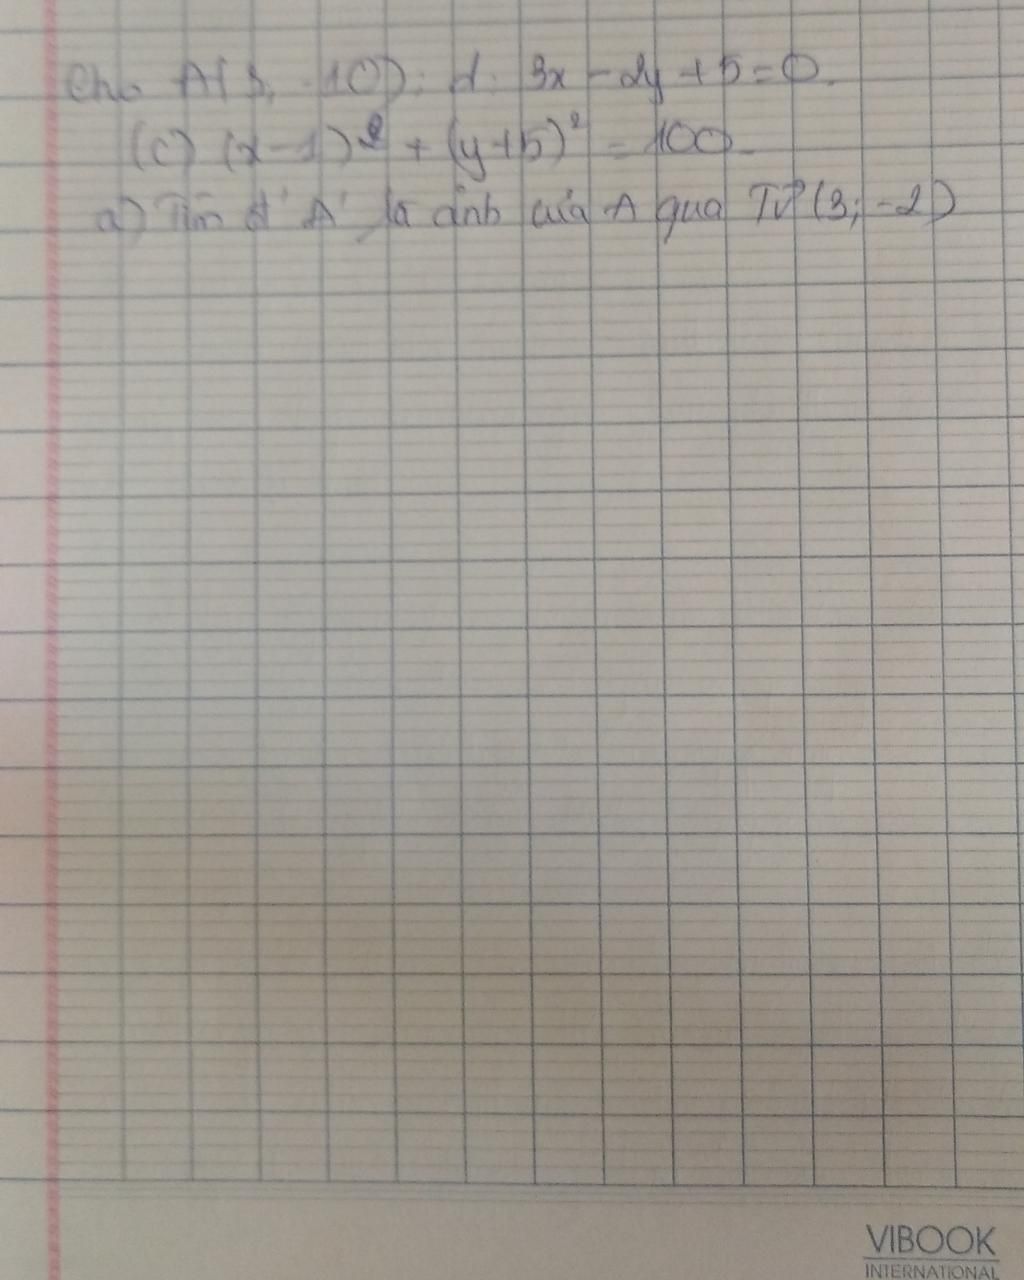 Cho A(3; -10); d: 3x - 2y + 5 = 0.
(C) (x-1)² + (y+5)² = 100.
a) Tìm đ' A' là ảnh của A qua Tv⃗ (3; -2)
VIBOOK
INTERNATIONAL